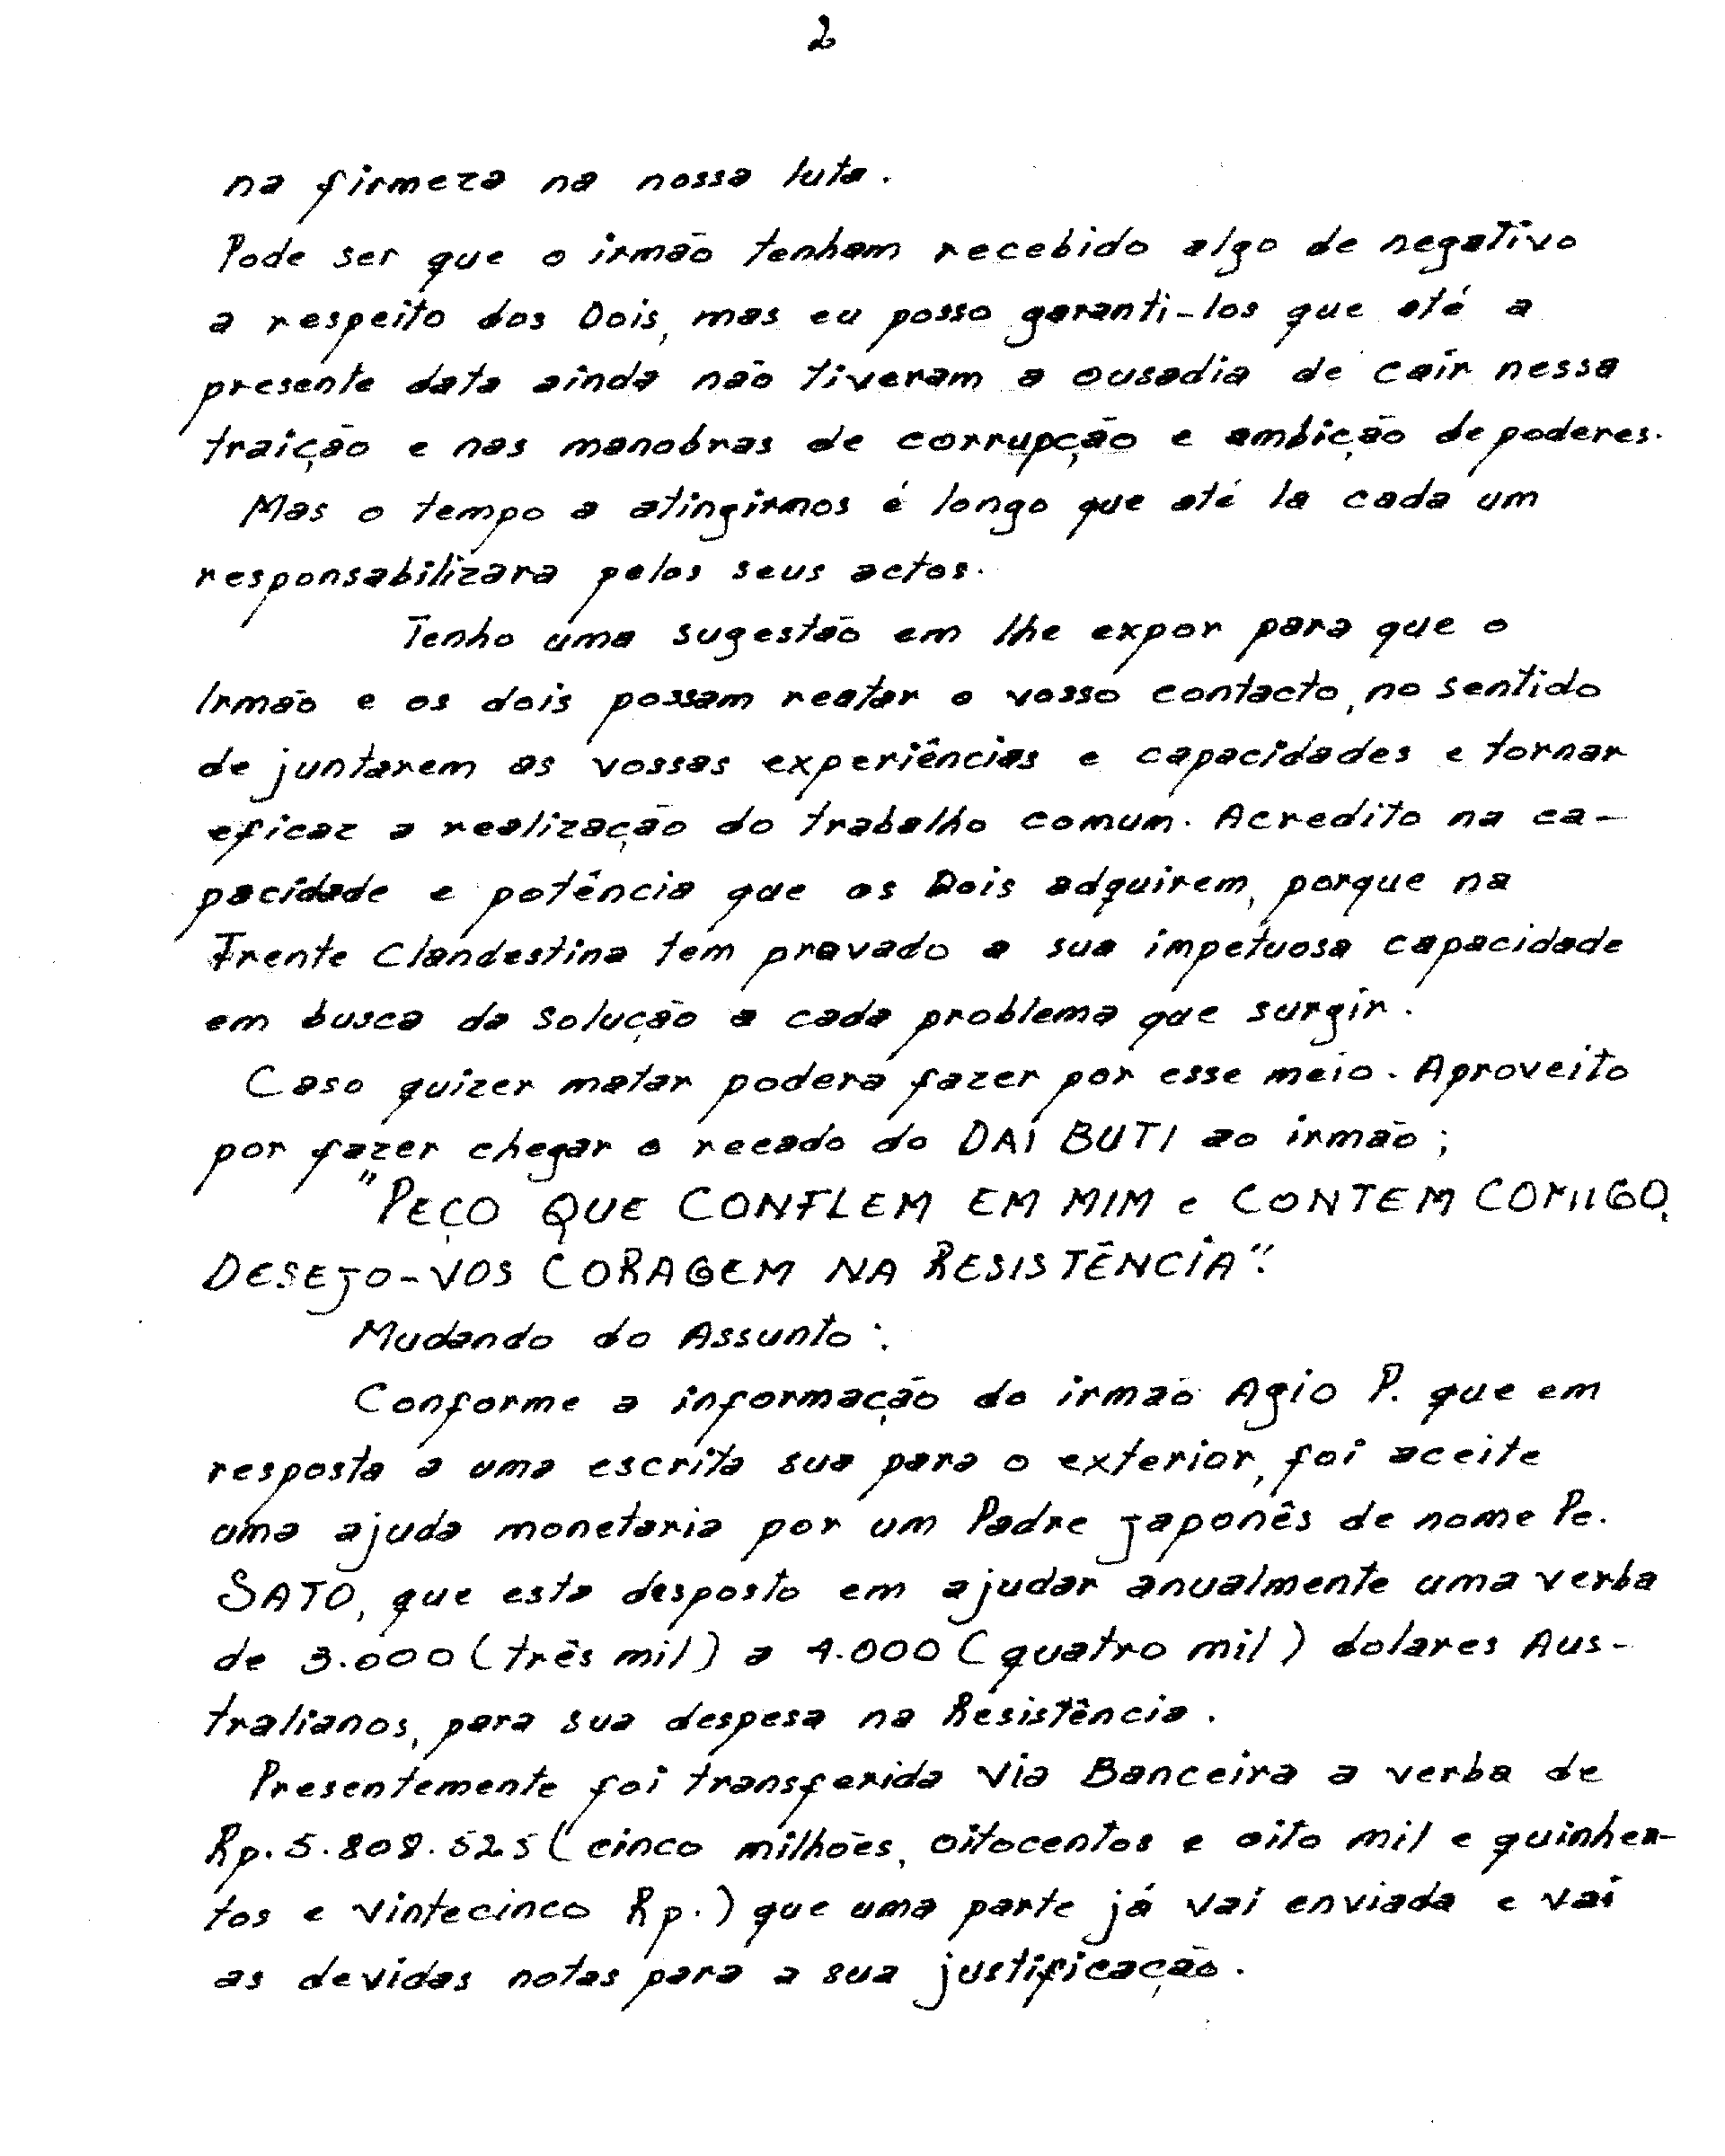 2
na firmeza na nossa luta.
Pode ser que o irmão tenham recebido algo de negativo
a respeito dos Dois, mas eu posso garanti-los que até a
presente data ainda não tiveram a ousadia de cair nessa
traição e nas manobras de corrupção e ambição de poderes.
Mas o tempo a atingirmos é longo que até la cada um
responsabilizara pelos seus actos.
Tenho uma sugestão em lhe expor para que o
Irmão e os dois possam reatar o vosso contacto, no sentido
de juntarem as vossas experiências e capacidades e tornar
eficaz a realização do trabalho comum. Acredito na ca-
pacidade e potência que os Dois adquirem, porque na
Frente Clandestina tem provado a sua impetuosa capacidade
em busca da solução a cada problema que surgir.
Caso quizer matar poderá fazer por esse meio. Aproveito
por fazer chegar o recado do DAI BUTI ao irmão;
"PEÇO QUE CONFLEM EM MIM e CONTEM COMIGO,
DESEJO-VOS CORAGEM NA RESISTÊNCIA".
Mudando do Assunto:
Conforme a informação do irmão Agio P. que em
resposta a uma escrita sua para o exterior, foi aceite
uma ajuda monetaria por um Padre Japonês de nome Pe.
SATO, que esta desposto em ajudar anualmente uma verba
de 3.000 (três mil) a 4.000 (quatro mil) dolares Aus-
tralianos, para sua despesa na Resistência.
Presentemente foi transferida via Banceira a verba de
Rp. 5.808.525 (cinco milhões, oitocentos e oito mil e quinhen-
tos e vintecinco Rp.) que uma parte já vai enviada e vai
as devidas notas para a sua justificação.